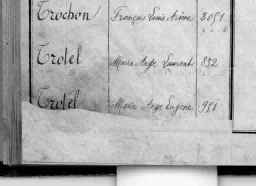 Trochon François Louis Aimé 3051
Trotel Marie Ange Laurent 832
Trotel Marie Ange Eugène 951